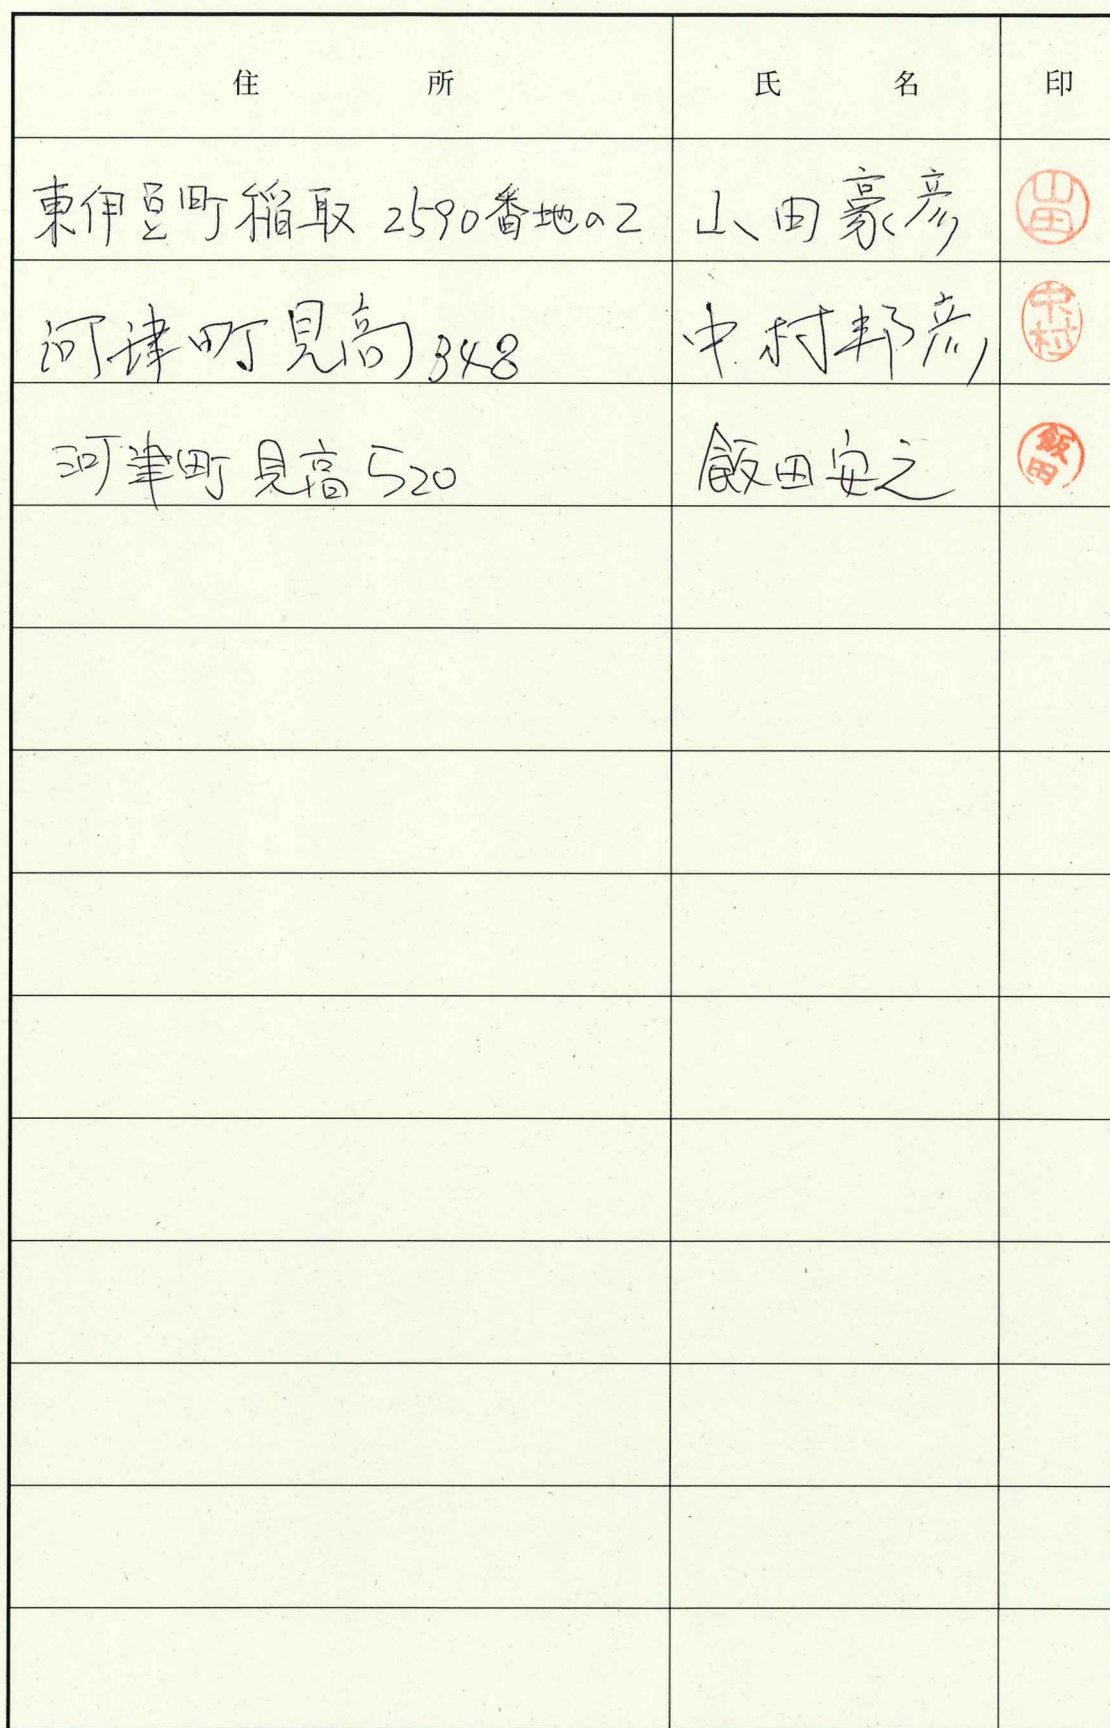 住所 氏名 印
東伊豆町稲取 2590番地の2 山田豪彦 山田
河津町見高348 中村邦彦 中村
河津町見高520 飯田安之 飯田